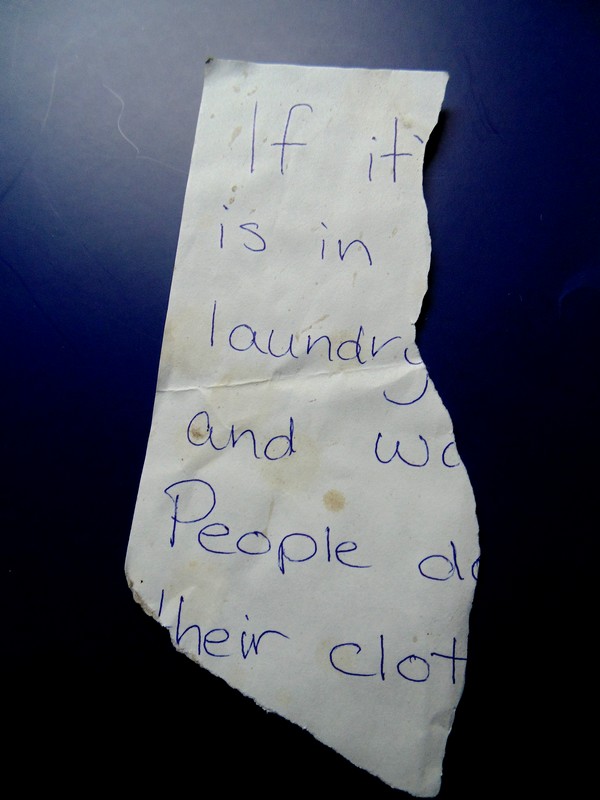 If it'
is in
laundry
and wa
People do
their clot